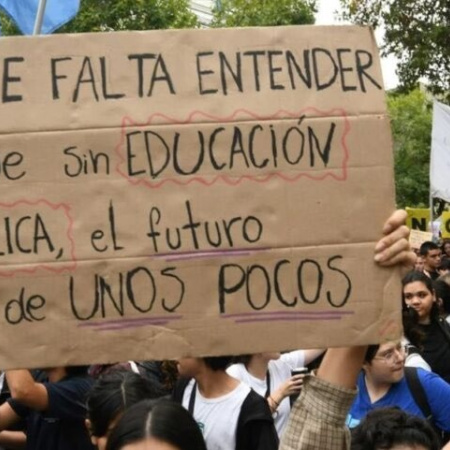 E FALTA ENTENDER
e sin EDUCACIÓN
LICA, el futuro
de UNOS POCOS